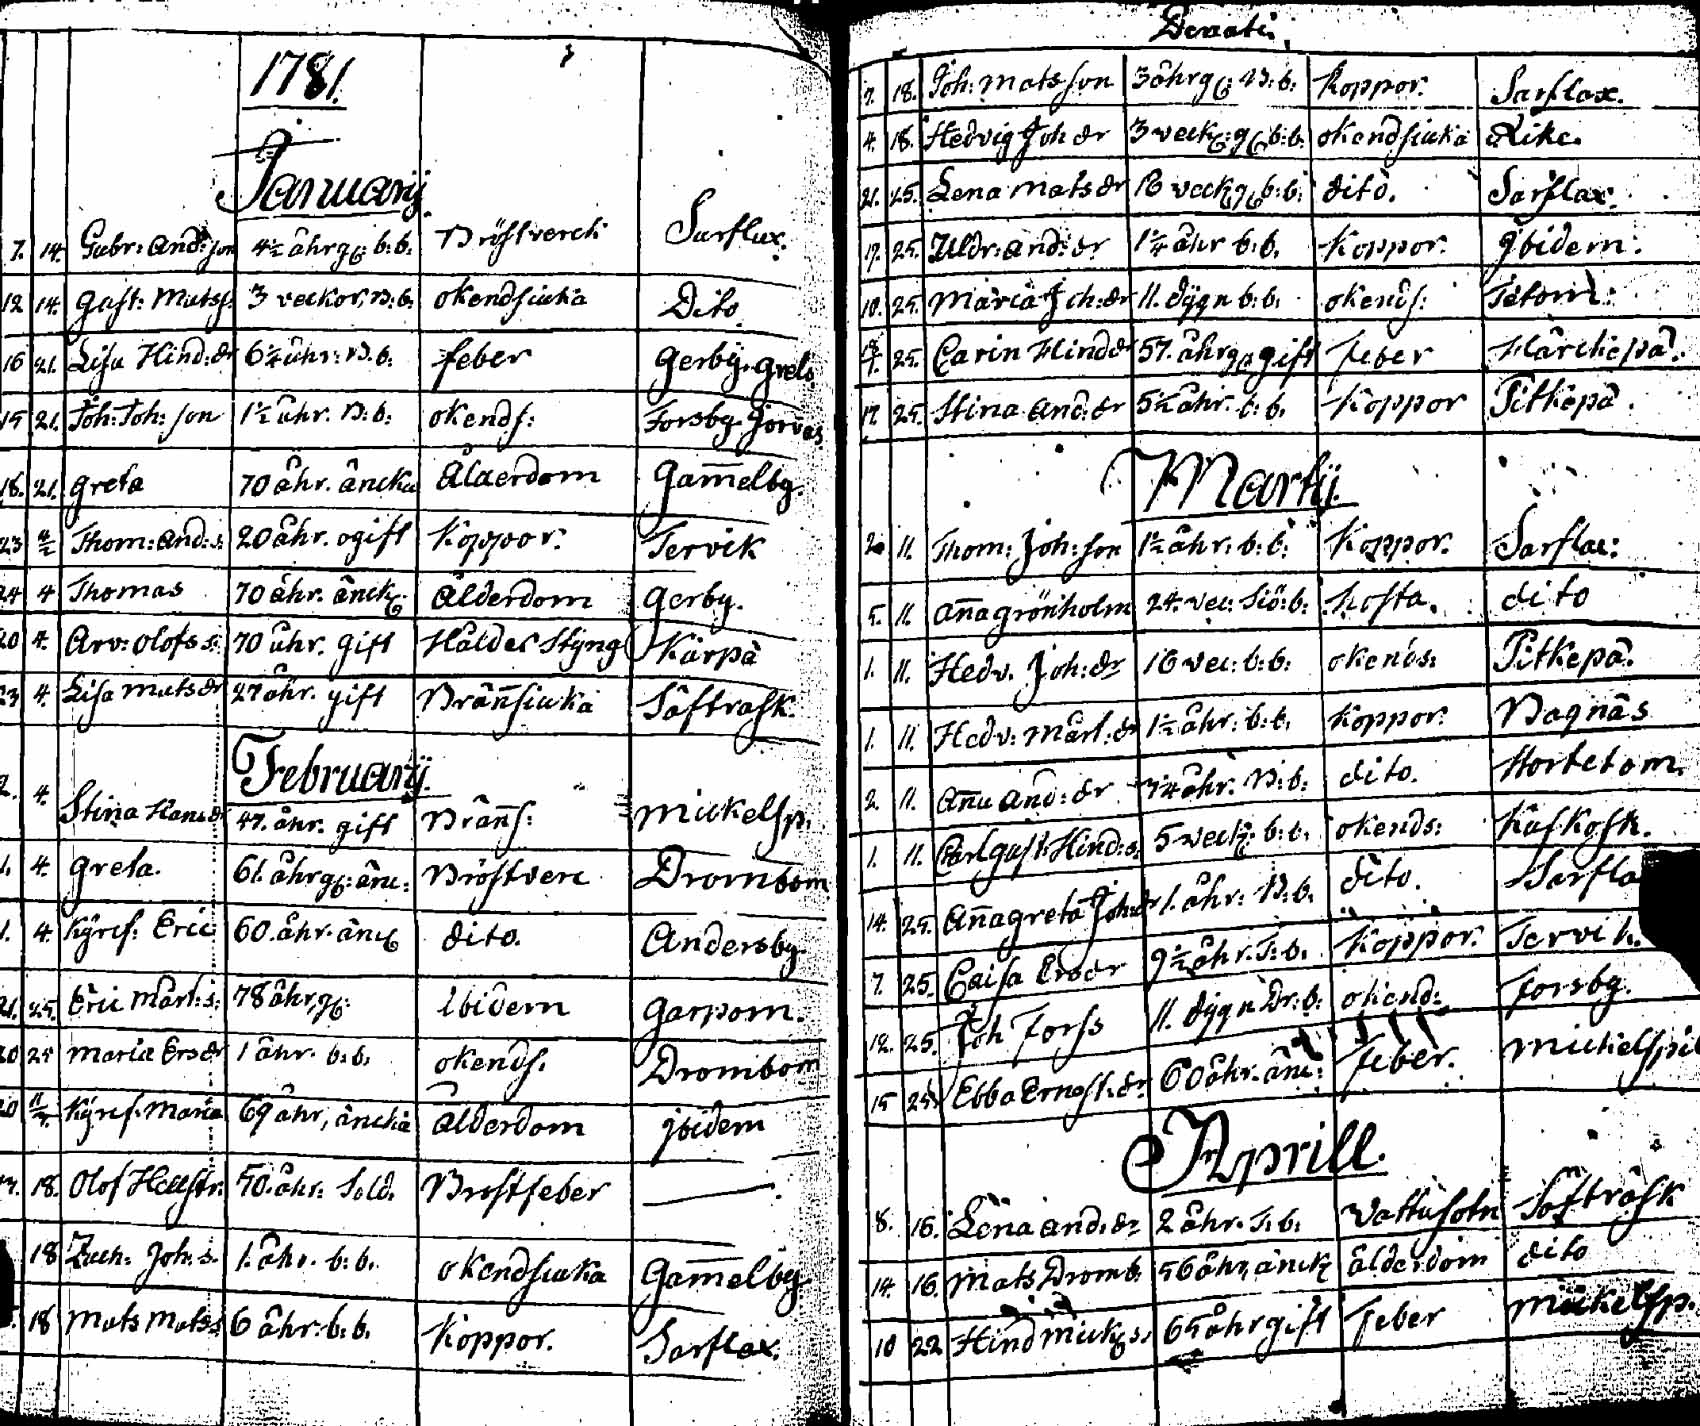 1781.
Januarij.
7. 14. Gabr: And: son 4½ åhrg: b:b: Bröstverck Sarflax.
12 14. Gust: Matss. 3 veckor, B:b: okendsiuka Dito
16 21. Lisa Hind: dr 6¼ åhr: B:b: feber Gerby. Grels
15 21. Joh: Joh: son 1½ åhr. B:b: okends: Forsby
18. 21. Greta 70 åhr. äncka Ålderdom Gamelby.
23 Thom: And: s: 20 åhr. ogift Koppor: Tervik
24 4 Thomas 70 åhr. änck: ålderdom Gerby.
20 4. Arv: Olofs s: 70 åhr. gift Håld el Styng Kärpä
23 4. Lisa Mats dr 27 åhr. gift Bränsiuka Säftrask.
Februarij.
2. 4. Stina Hans dr 47. åhr. gift Bräns: Mickelsp:
1. 4. Greta. 61. åhrg: änc: Bröstverc Drombom
1. 4. Kyrcf: Eric 60. åhr. änc dito. Andersby
21. 25. Eric Mårt: s: 78 åhrg: Ibidem Garpom.
20 25 Maria Ers dr 1 åhr. b:b. okends. Drombom
20 Kyrcf. Maria 69 åhr, äncka ålderdom jbidem
17. 18. Olof Hellstr: 50. åhr: Sold. Brostfeber
18 Zach: Joh: s. 1. åhr. b:b. okendsiuka Gamelby
18 Mats Mats s 6 åhr: b:b. Koppor. Sarflax.
Denati.
7. 18. Joh: Mats son 3 åhrg: B:b. Koppor. Sarflax.
4. 18. Hedvig Joh dr 3 veck: g: b:b: okendsiuka Rike.
21. 25. Lena Mats dr 16 veck: g: b:b: dito. Sarflax.
17. 25. Uldr: And: dr 1¼ åhr b:b. Koppor. Jbidem:
10. 25. Maria Joh: dr 11. dygn b:b. okends: Tetom:
25. Carin Hind dr 57. åhrg: gift feber Härckepä.
17. 25. Stina And: dr 5½ åhr. b:b. Koppor Pitkepä.
Martij.
2. 11. Thom: Joh: son 1½ åhr: b:b: Koppor. Sarflax:
5. 11. Anna Grönholm 24. vec: Siö: b: hosta. dito
1. 11. Hedv. Joh: dr 16 vec: b:b: okends: Pitkepä.
1. 11. Hedv: Mårt: dr 1½ åhr: b:b. Koppor: Bagnäs
2. 11. Anna And: dr ¾ åhr. B:b: dito. Hortetom.
1. 11. Carl Gust: Hind: s. 5 veck: b:b. okends: Kuskosk.
14. 25. Anna Greta Joh: dr 1. åhr: B:b. dito. Sarfla
7. 25. Caisa Ers dr 9½ åhr. T:b. Koppor. Tervik.
12. 25. Joh Forss 11. dygn Dr: b: okend: Forsby.
15 25. Ebba Ernst: dr 60 åhr. änc: Feber. Mickelspil
Aprill.
8. 16. Lena And: dr 2 åhr. T:b. Wattusotn Söfträsk
14. 16. Mats Dromb. 56 åhr, änck ålderdom dito
10 22. Hind Mick s: 65 åhr gift Feber Mickelsp.